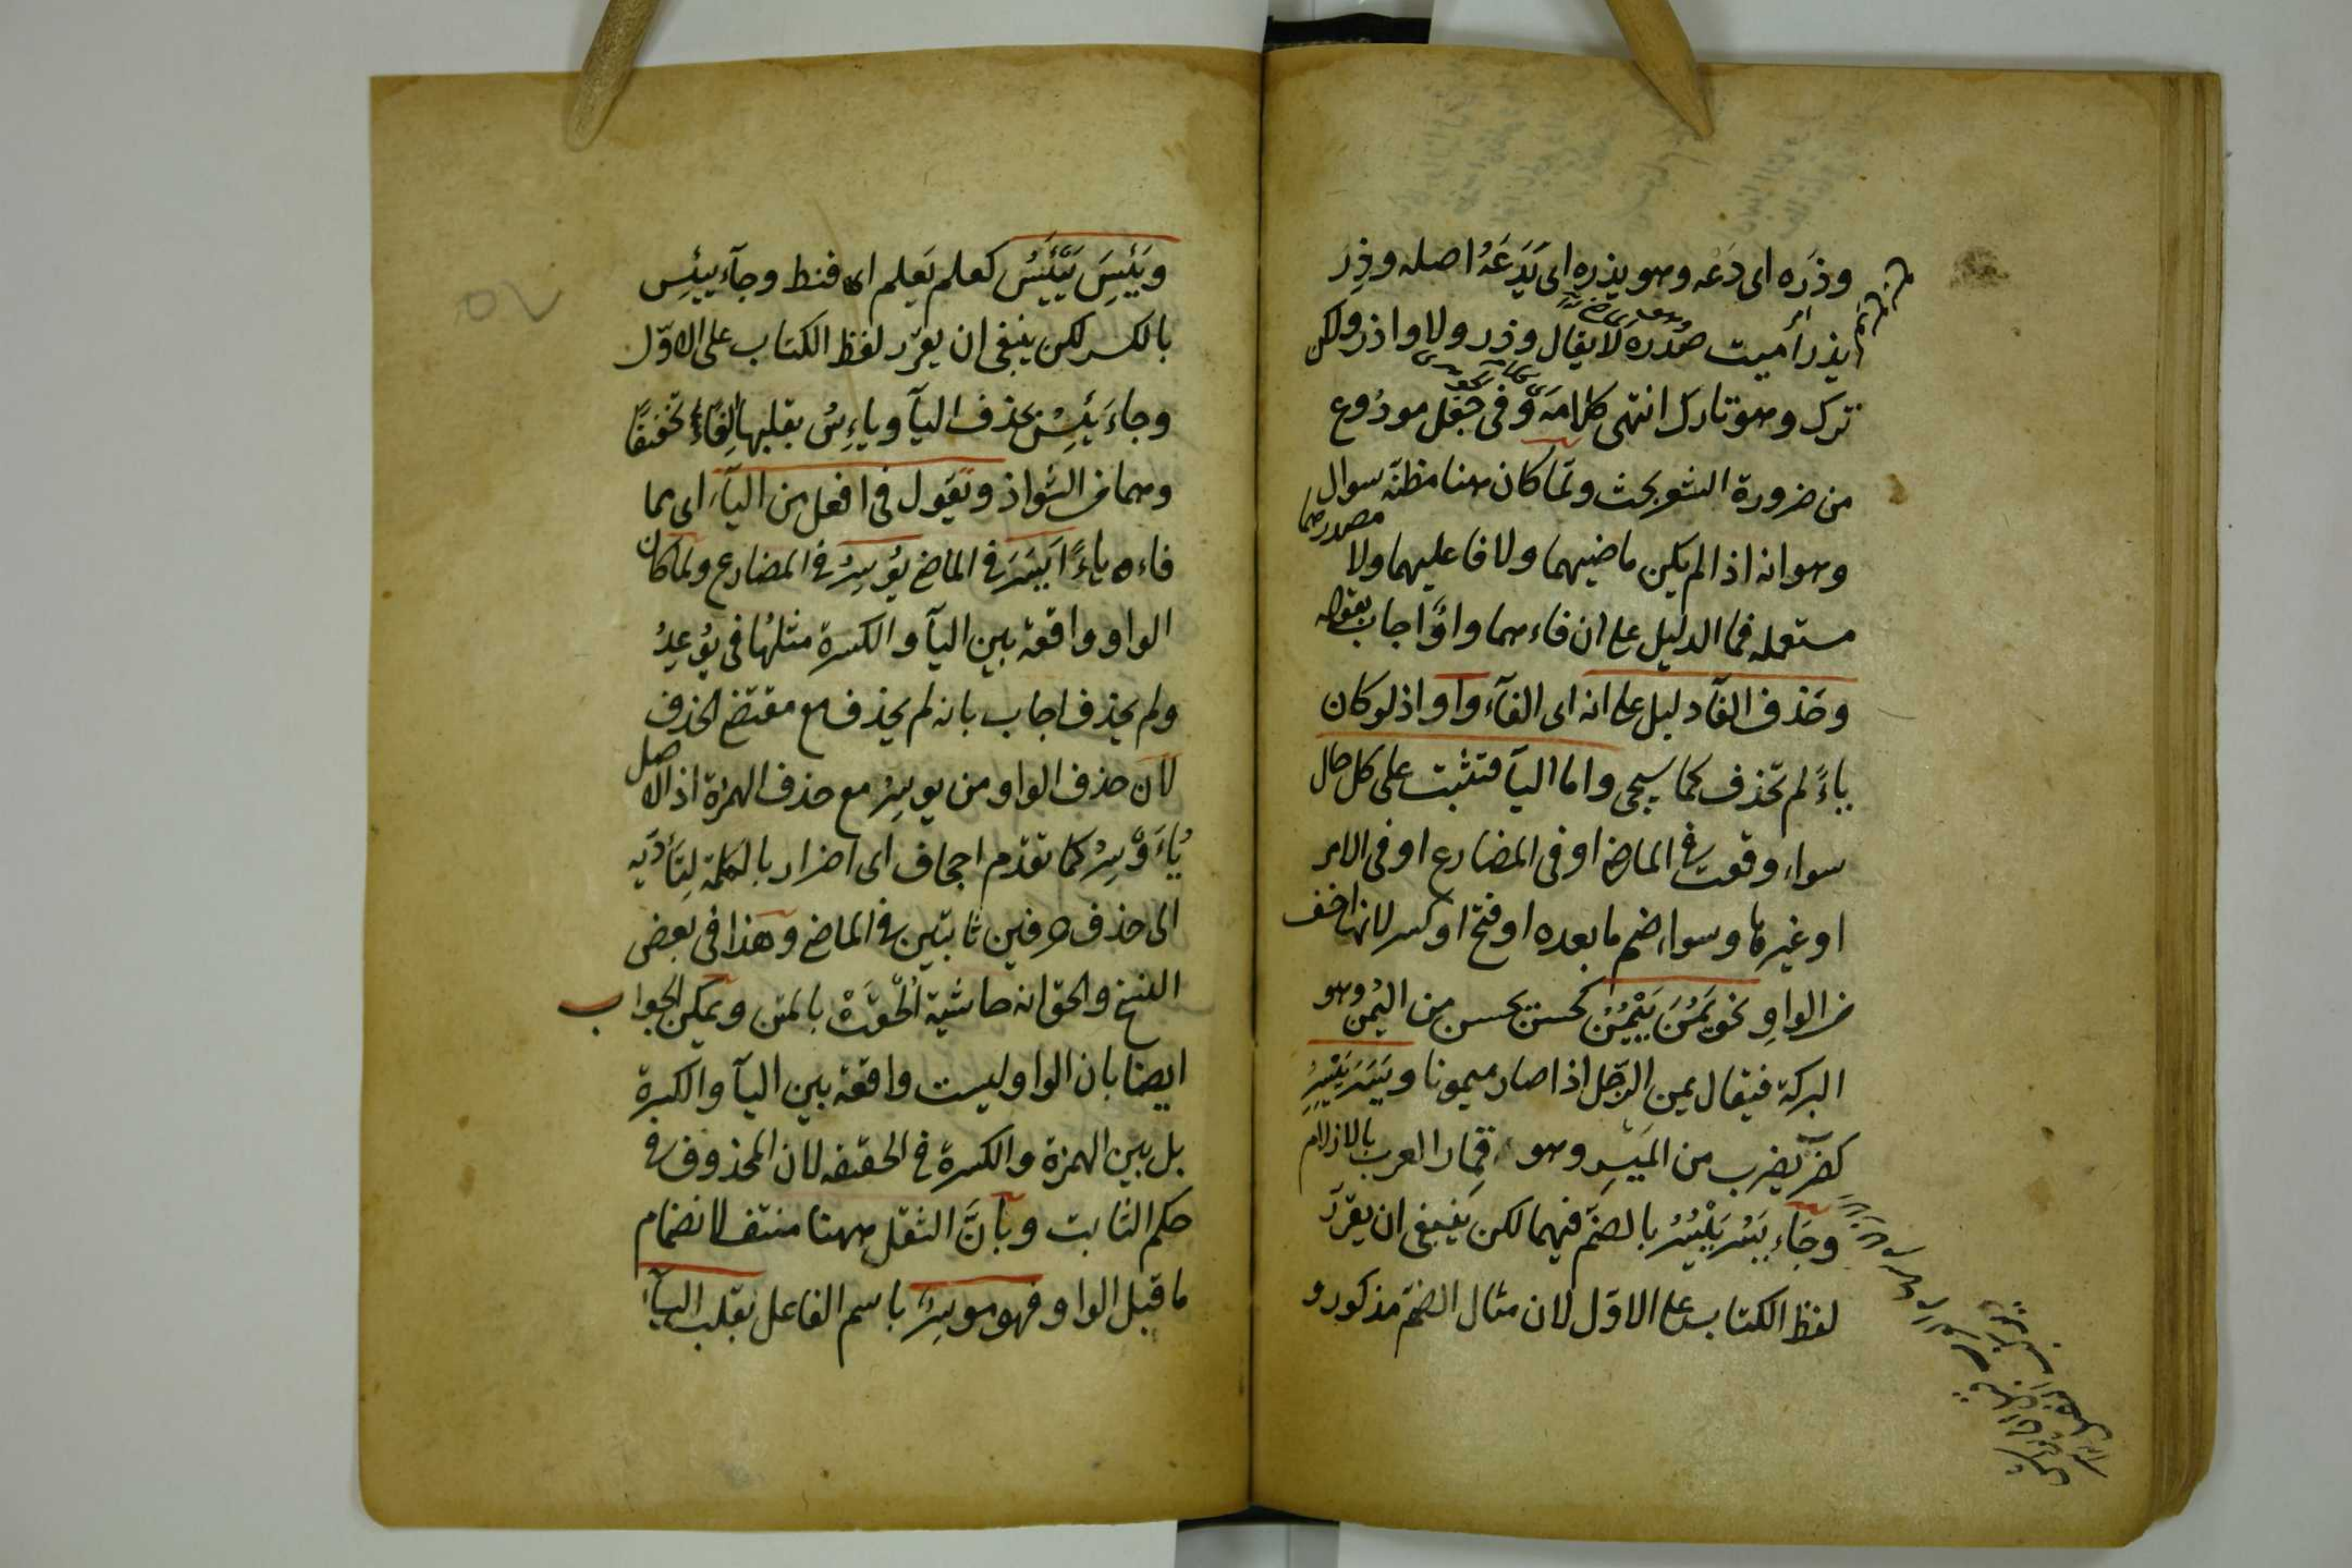 وذره اى دعه وهو يذره اى يَدَعَهُ اصله وذِرَ
يذر أميت مصدره لا يقال وذر ولا واذر ولكن
ترك وهو تارك انتهى كلامه وفى جعل مودُوع
من ضرورة الشعر بحث ولمّا كان هنا مظنّة سوال
وهو انه اذا لم يكن ماضيهما ولا فاعليهما ولا مصدرهما
مستعمله فما الدليل على ان فاءهما واوًا اجاب بقوله
وحَذف الفآء دليل على انه اى الفآء واو اذ لو كان
ياءً لم تحذف كما سيجى واما اليآ فتثبت على كل حال
سواء وقعت فى الماضى او فى المضارع او فى الامر
او غيرها وسواء ضم ما بعده او فتح او كسر لانها اخف
من الواوِ نحو يَمُنَ يَيْمُنُ كحسن يحسن من اليُمن وهو
البركة فيقال يمن الرّجل اذا صار ميمونا ويَسَرَ يَيْسِرُ
كضرب يضرب من المَيسِر وهو قِمار العرب بالازلام
وجَاء يَسُر يَيْسُرُ بالضمّ فيهما لكن ينبغى ان يقرّر
لفظ الكتاب على الاوّل لان مثال الضمّ مذكور و
ويَئِسَ يَيْئَسُ كعلم يَعلم اى قنط وجآء ييئِس
بالكسر لكن ينبغى ان يقرّر لفظ الكتاب على الاوّل
وجاءَ يَئِسُ بحذف اليآ وياءِسُ بقلبها الفًا تخفيفًا
وهما من الشواذ وتقول فى افعل من اليآء اى مما
فاءه ياءً ايَسَرَ فى الماضى يُوسِرُ فى المضارع ولما كان
الواو واقعة بين اليآ والكسرة مثلهُا فى يُوعِدُ
ولم يحذف اجاب بانه لم يحذف مع مقتضى الحذف
لان حذف الواو من يوسِرُ مع حذف الهمزة اذ الاصل
يُاءَوْسِرُ كما تقدم اجحاف اى اضرار بالكلمة لِتَأدّيه
الى حذف حرفين ثابتين فى الماضى وهذا فى بعض
النسخ والحق انه حاشية اُلْحِقَتْ بالمتن ويمكن الجواب
ايضا بان الواو ليست واقعة بين اليآ والكسرة
بل بين الهمزة والكسرة فى الحقيقه لان المحذوف فى
حكم الثابت وبأنَّ الثقل ههنا منتف لانضمام
ما قبل الواو فهو موسِرٌ باسم الفاعل بقلب اليآء